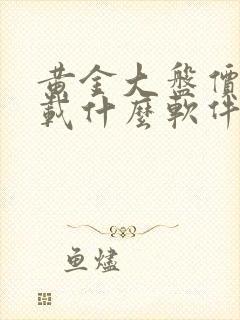 黃金大盤價
載什麼軟件
鱼燼